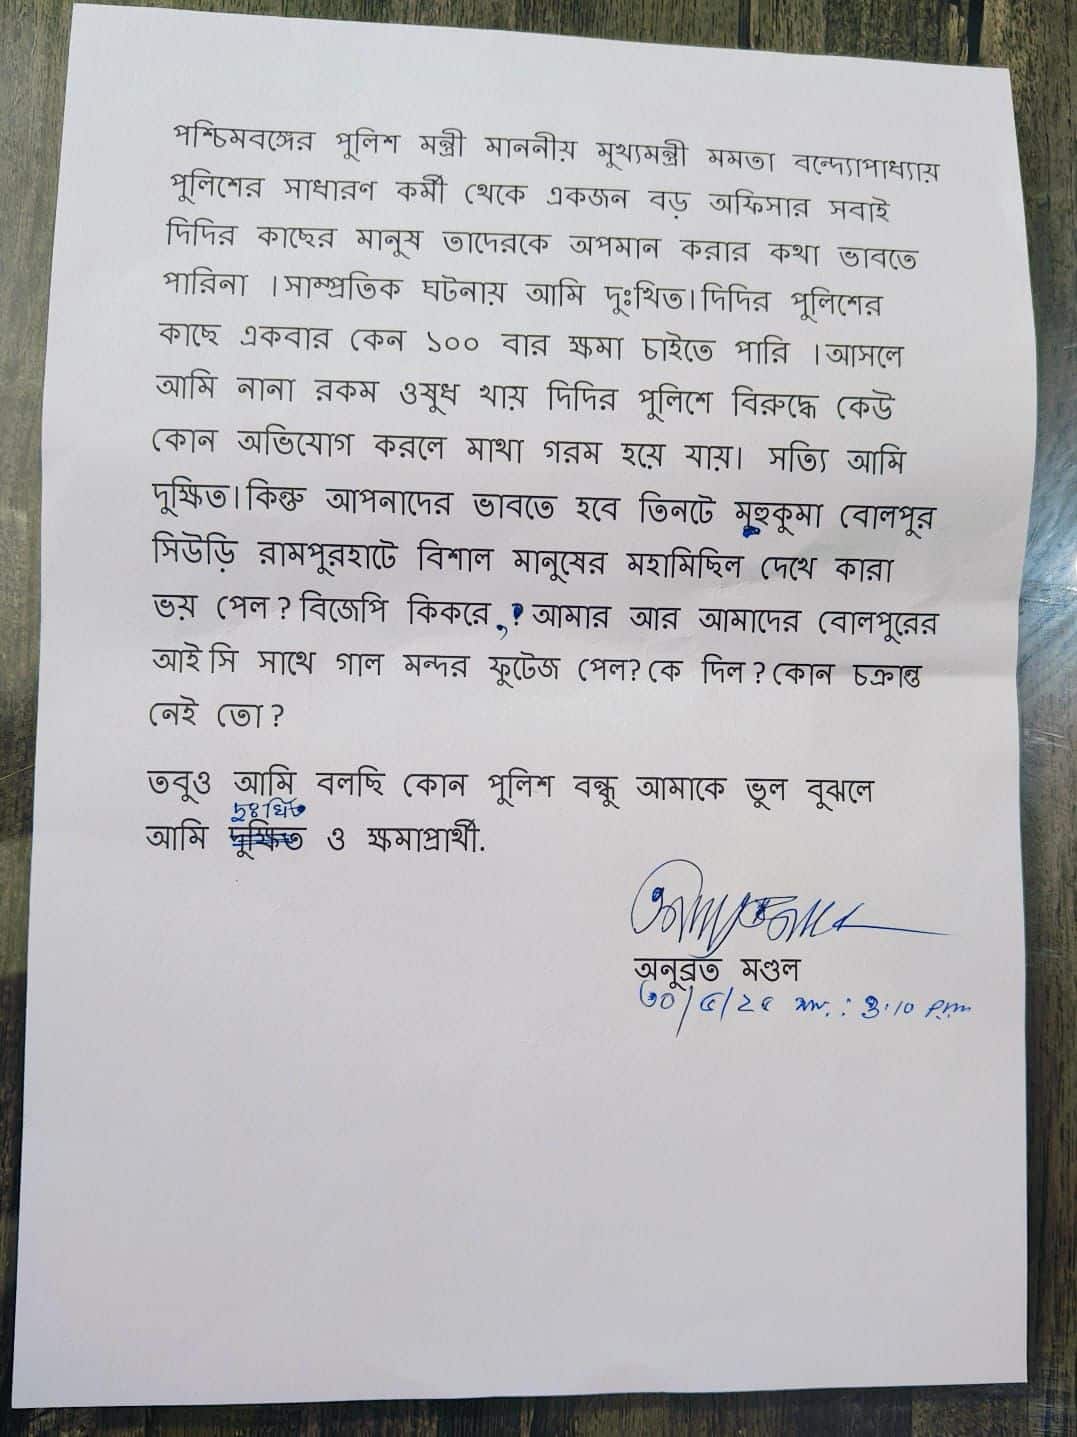 পশ্চিমবঙ্গের পুলিশ মন্ত্রী মাননীয় মুখ্যমন্ত্রী মমতা বন্দ্যোপাধ্যায়
পুলিশের সাধারণ কর্মী থেকে একজন বড় অফিসার সবাই
দিদির কাছের মানুষ তাদেরকে অপমান করার কথা ভাবতে
পারিনা । সাম্প্রতিক ঘটনায় আমি দুঃখিত। দিদির পুলিশের
কাছে একবার কেন ১০০ বার ক্ষমা চাইতে পারি । আসলে
আমি নানা রকম ওষুধ খায় দিদির পুলিশে বিরুদ্ধে কেউ
কোন অভিযোগ করলে মাথা গরম হয়ে যায়। সত্যি আমি
দুক্ষিত। কিন্তু আপনাদের ভাবতে হবে তিনটে মহুকুমা বোলপুর
সিউড়ি রামপুরহাটে বিশাল মানুষের মহামিছিল দেখে কারা
ভয় পেল? বিজেপি কিকরে,? আমার আর আমাদের বোলপুরের
আই সি সাথে গাল মন্দর ফুটেজ পেল? কে দিল? কোন চক্রান্ত
নেই তো?
তবুও আমি বলছি কোন পুলিশ বন্ধু আমাকে ভুল বুঝলে
দুঃখিত
আমি দুক্ষিত ও ক্ষমাপ্রার্থী.
অনুব্রত মণ্ডল
৩০/৫/২৫ 3:10 P.m